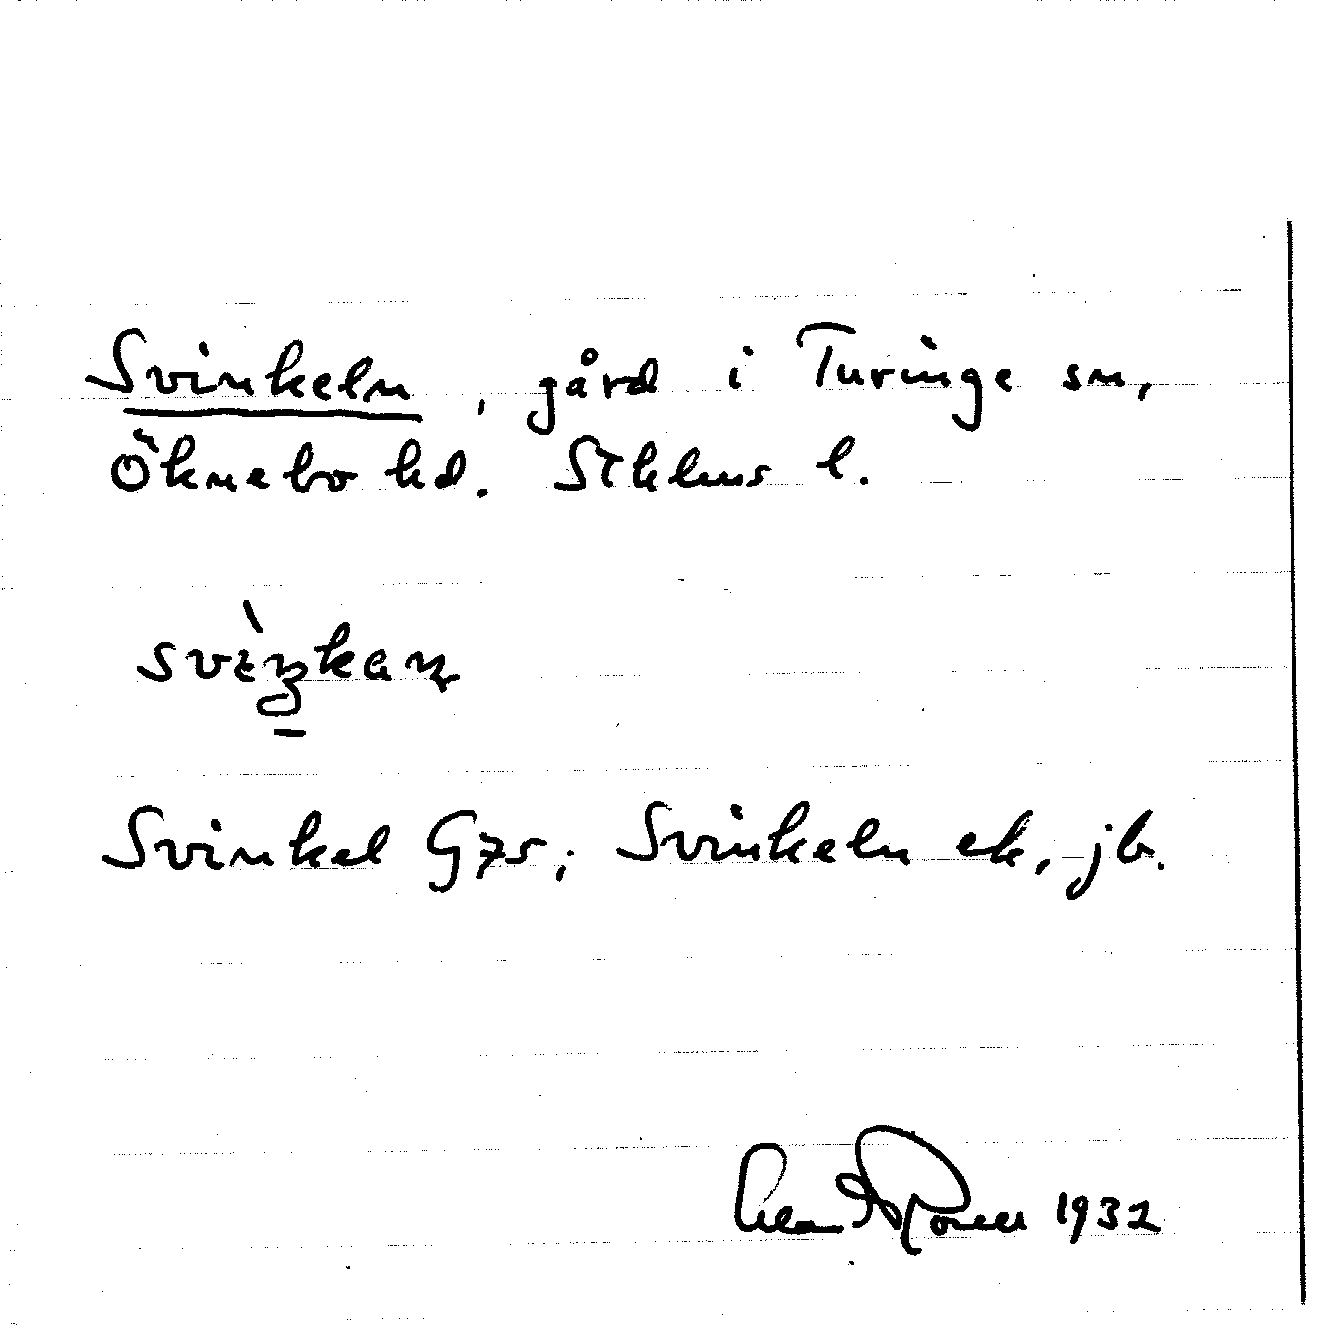 Svinkeln, gård i Turinge sn,
Öknebo hd. Sthlms l.
Svinkel G7s; Svinkeln ek, jb.
1932